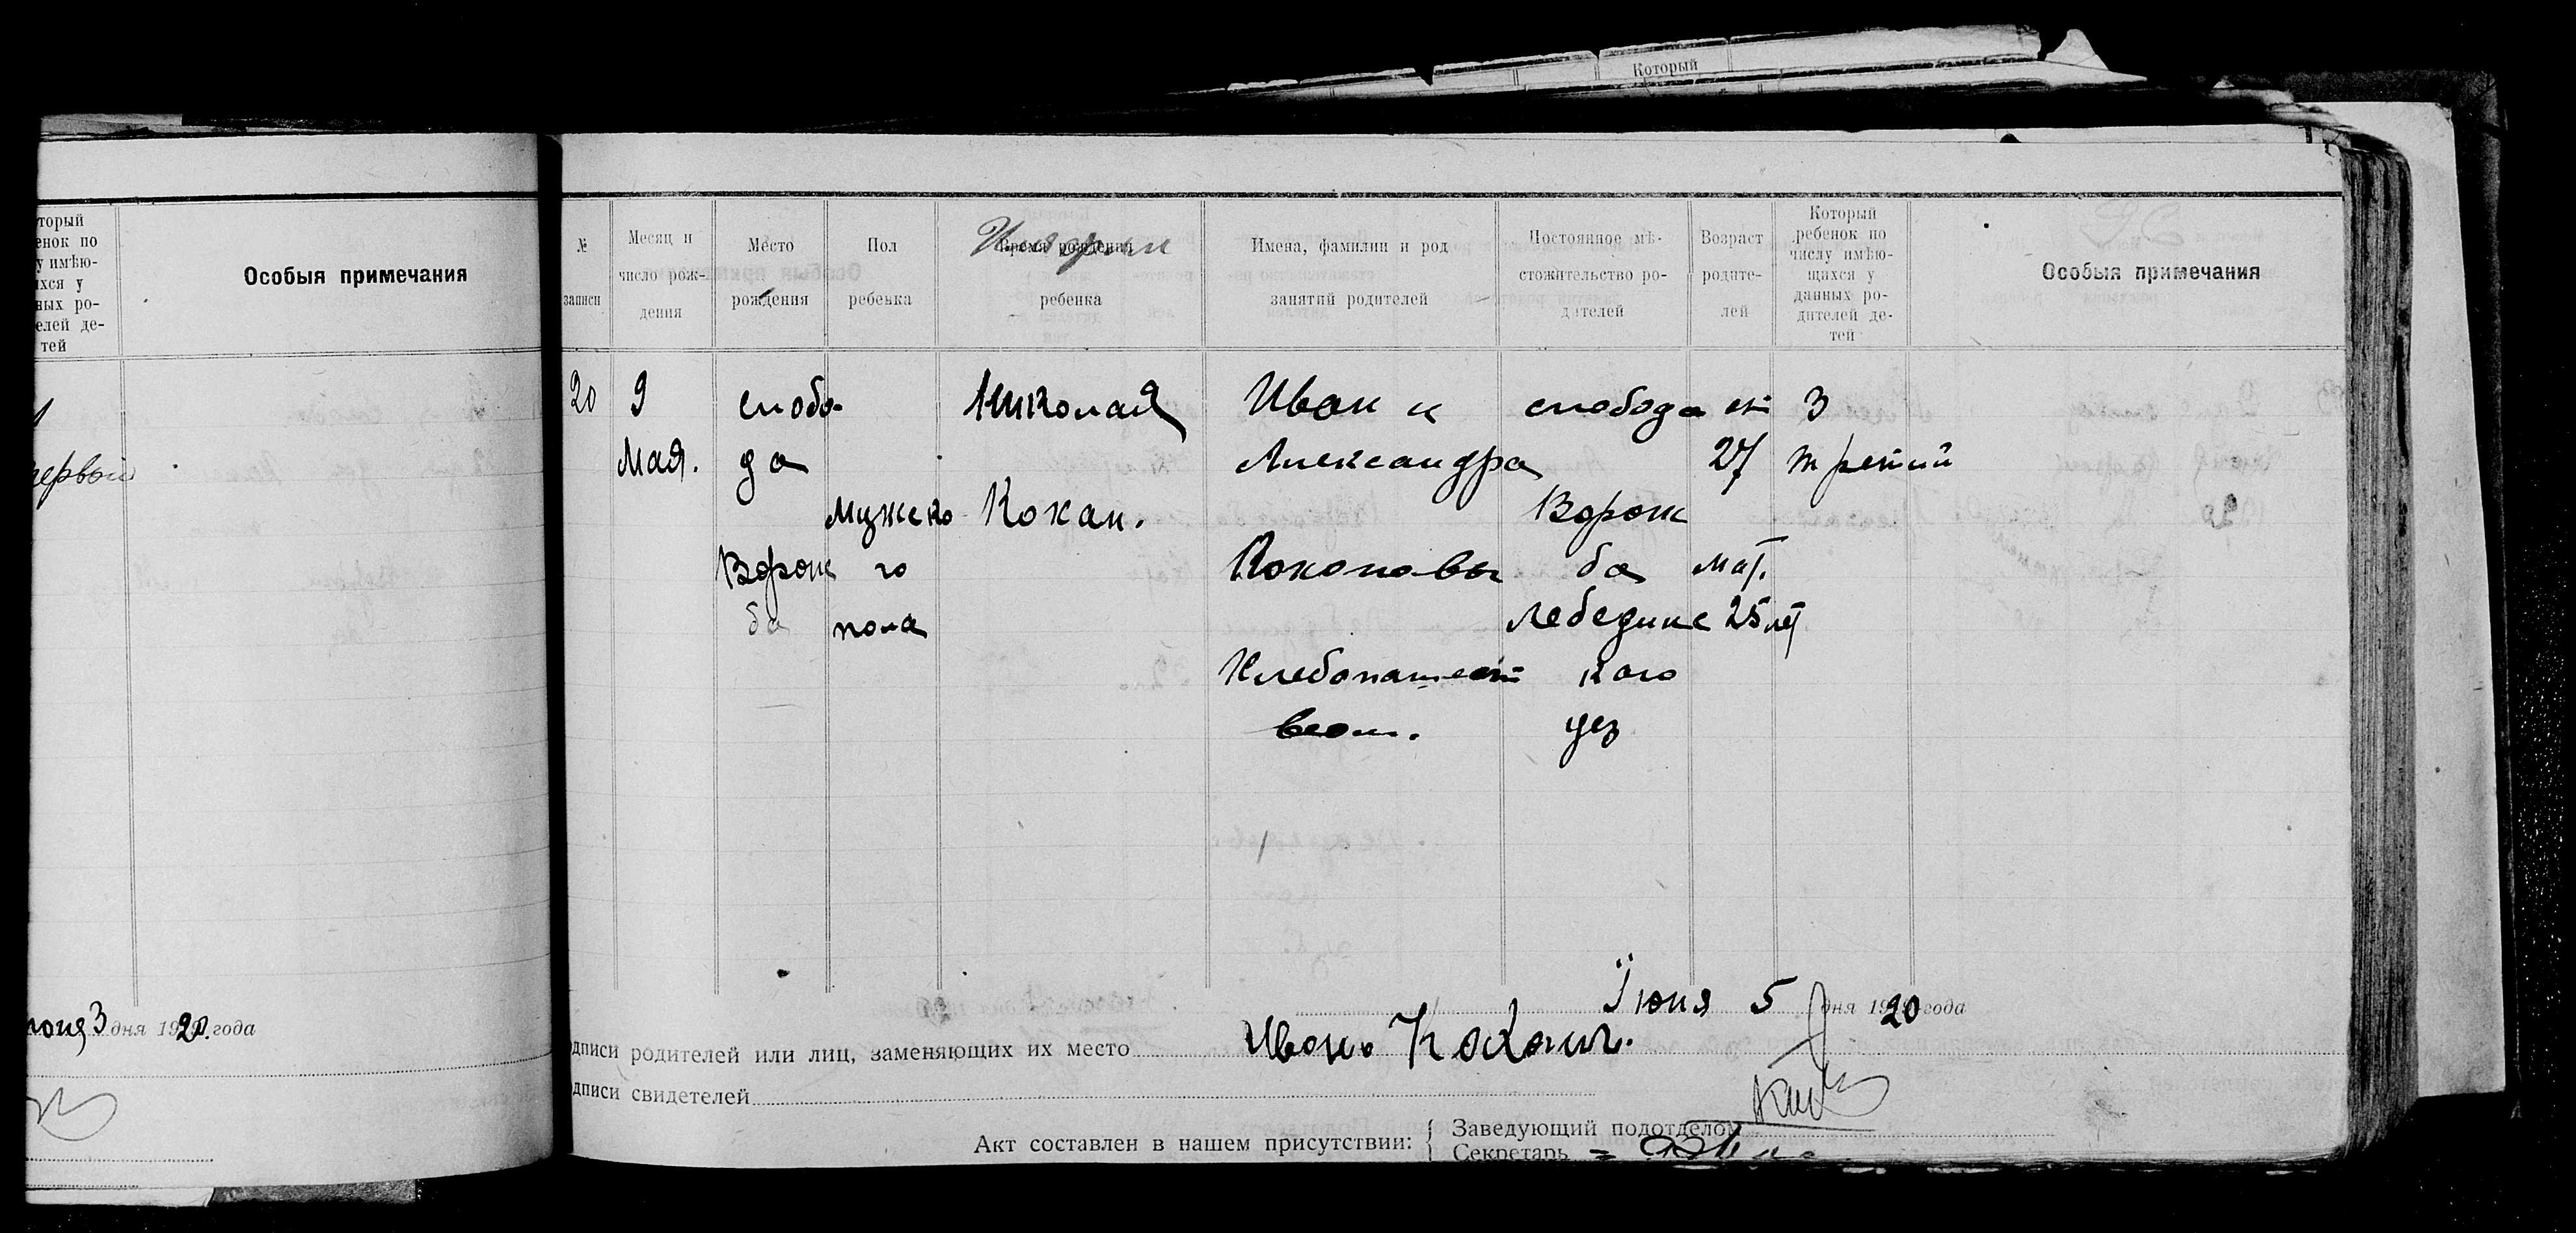 Который
торый
енок по
у имѣю-
ихся у
ных ро-
елей де-
тей
Особыя примечания
первый
июня 3 дня 1920. года
№
записи
Месяц и
число рож-
дения
Место
рождения
Пол
ребенка
Время рождения
ребенка
Имена, фамилии и род
занятий родителей
Постоянное мѣ-
стожительство ро-
дителей
Возраст
родите-
лей
Который
ребенок по
числу имѣю-
щихся у
данных ро-
дителей де-
тей
Особыя примечания
20
9
Мая.
слобо-
да
Ворож
ба
Мужско
го
пола
Николай
Кохан.
Иван и
Александра
Коханови
Хлебопашест
слобода
Ворож
ба
Лебединс
кого
уез
от
27
мат.
25 лет
3
третий
Іюня 5 дня 1920 года
одписи родителей или лиц, заменяющих их место Иван Кохан.
одписи свидетелей
Акт составлен в нашем присутствии:
Заведующий подотделом
Секретарь